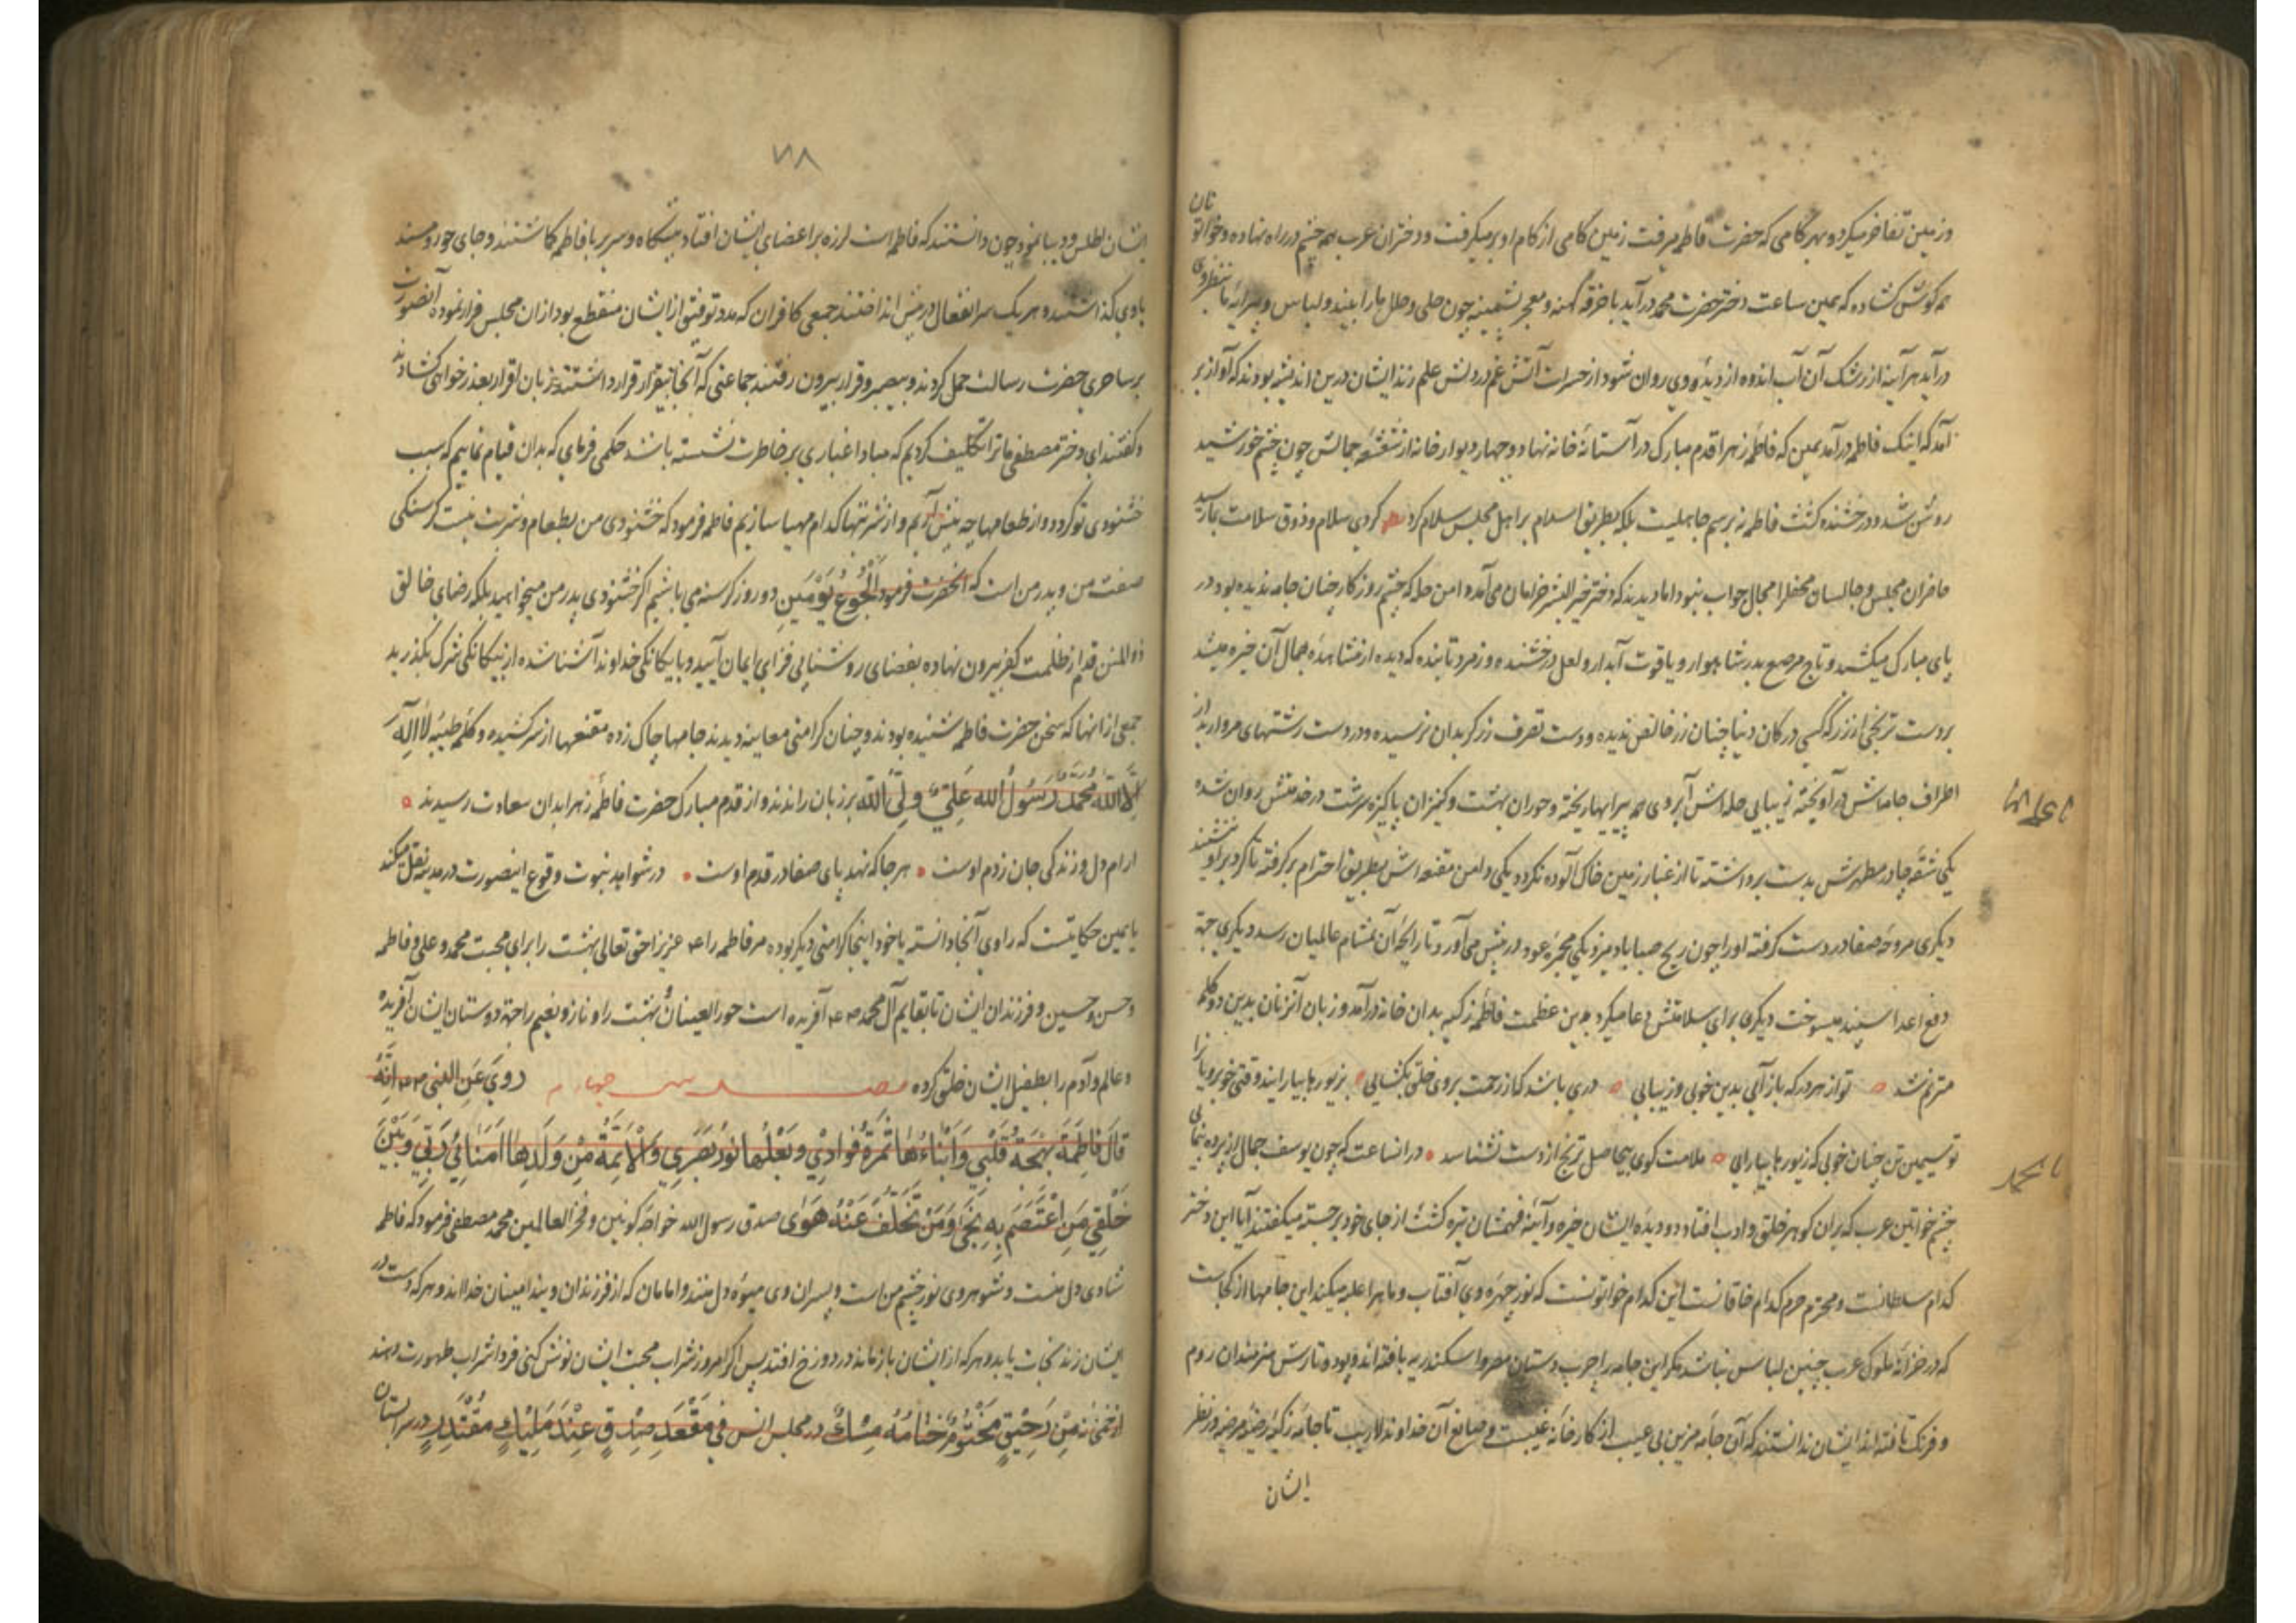 وزمین تفاخر میکرد و بهر کامی که حضرت فاطمه میرفت زمین کامی از کام او بر میکرفت و دختران عرب همه چشم در راه نهاده و خواتونان
همه کوش کشاده که همین ساعت دختر حضرت محمد درآید با خرقه کهنه و معجر پشمینه چون حلی و حلل ما را ببیند و لباس و پیرایه ما
درآید هرآینه از رشک آن آب اندوه از دیده وی روان شود از حسرات آتش غم در دلش علم زند ایشان درین اندیشه بودند که آواز بر
آمد که اینک فاطمه درآمد همین که فاطمه زهرا قدم مبارک در آستانه خانه نهاد و چهار دیوار خانه از شعشعه جمالش چون چشم خورشید
روشن شد و درخشنده کشت فاطمه نه برسم جاهلیت بلکه بطریق اسلام بر اهل مجلس سلام کرد کردی سلام و ذوق سلامت بما رسید
حاضران مجلس و جالسان محفل را مجال جواب نبود اما دیدند که دختر خیر البشر خرامان می آمد و دامن حله که چشم روزکار چنان جامه ندیده بود در
پای مبارک میکشد و تاج مرصع بدر شاهوار و یاقوت آبدار و لعل درخشنده و زمرد تابنده که دیده از مشاهده جمال آن خیره میشد
بر دست ترنجی از زر که کسی در کان دنیا چنان زر خالص ندیده و دست تصرف زرکر بدان نرسیده و در دست رشتهای مروارید از
اطراف جامه اش درآویخته زیبایی حله اش آبروی همه پیرایها ریخته و حوران بهشت و کنیزان پاکیزه سرشت در خدمتش روان شده
یکی شقه چادر مطهرش بدست برداشته تا از غبار زمین خاک آلوده نکردد یکی دامن مقنعه اش بطریق احترام بر کرفته تا کرد بر او ننشیند
دیکری مروحه صفا در دست کرفته او را چون ریح صبا باد میزد یکی مجمره عود در پیش می آورد تا رایحه آن بمشام عالمیان رسد دیکری جهة
دفع اعدا سپند میسوخت دیکری برای سلامتش دعا میکرد بدین عظمت فاطمه زکیه بدان خانه درآمد و زبان آنزنان بدین دو کلمه
مترنم شد تو از هر در که باز آیی بدین خوبی و زیبایی دری باشد که از رحمت بروی خلق بکشایی بزیورها بیارایند وقتی خوبرویانرا
تو سیمین تن چنان خوبی که زیورها بیارایی ملامت کوی بیحاصل ترنج از دست نشناسد در انساعت که چون یوسف جمال از پرده بنمایی
چشم خواتین عرب که بران کوهر خلق و ادب افتاد دیده ایشان خیره و آئینه فهمشان تیره کشت از جای خود برجسته میکفتند آیا این دختر
کدام سلطانست و محترم حرم کدام خاقانست این کدام خواتونست که نور چهره وی آفتاب و ماه را غلبه میکند این جامها از کجاست
که در خزانه ملوک عرب چنین لباس نباشد مکر این جامه را چرب دستان مصر و اسکندریه بافته اند و پود و تارش هنرمندان روم
و فرنک تافته اند ایشان ندانستند که آن جامه مزین بی عیب از کارخانه غیبست و صانع آن خداوند لاریب تا جامه زکیه رضیه مرضیه در نظر
ایشان
۷۸
ایشان اطلس و دیبا نمود چون دانستند که فاطمه است لرزه بر اعضای ایشان افتاد پیشکاه و سریر با فاطمه کذاشتند و جای خود و مسند
باوی کذاشتند و هر یک سر انفعال در پیش انداختند جمعی کافران که مدد توفیق از ایشان منقطع بود ازان مجلس فرار نموده آنصورت
بر ساحری حضرت رسالت حمل کردند و بیصبر و قرار بیرون رفتند جماعتی که آنجا بقرار قرار داشتند زبان اقرار بعذر خواهی کشادند
و کفتند ای دختر مصطفی ما ترا تکلیف کردیم که مبادا غباری بر خاطرت نشسته باشد حکمی فرمای که بدان قیام نماییم که سبب
خشنودی تو کردد و از طعامها چه پیش آریم و از شربتها کدام مهیا سازیم فاطمه فرمود که خشنودی من بطعام و شربت نیست کرسنکی
صفت من و پدر من است که آنحضرت فرمود اَلْجُوعُ یَوْمَیْنِ دو روز کرسنه می باشیم اکر خشنودی پدر من میخواهید بلکه رضای خالق
ذوالمنن قدم از ظلمت کفر بیرون نهاده بفضای روشنایی فزای ایمان آیید و با یکانکی خداوند آشنا شده از بیکانکی شرک بکذرید
جمعی از انها که سخن حضرت فاطمه شنیده بودند و چنان کرامتی معاینه دیدند جامها چاک زده مقنعها از سر کشیده و کلمه طیبه لا اله
الّا الله مُحَمَّدٌ رَسُولُ الله عَلِیٌّ وَلِیُّ الله بر زبان راندند و از قدم مبارک حضرت فاطمه زهرا بدان سعادت رسیدند
ارام دل و زندکی جان ز دم اوست هر جا که نهد پای صفا در قدم اوست در شواهد نبوت وقوع اینصورت در مدینه نقل میکند
یا همین حکایتست که راوی آنجا دانسته یا خود اینجا کرامتی دیکر بوده مر فاطمه را ع عزیز احق تعالی بهشت را برای محبت محمد و علی و فاطمه
و حسن و حسین و فرزندان ایشان تا بقایم آل محمد آفریده است حور العینان بهشت را و ناز و نعیم راحتهٔ دوستان ایشان آفریده
و عالم و آدم را بطفیل ایشان خلق کرده چهارم رویَ عَنِ النبی اَنَّهُ
قَالَ فاطِمَةُ بَهْجَةُ قَلْبِي وَاَبْنَاءُهَا ثَمَرَةُ فُوَادِي وَبَعْلُهَا نُورُ بَصَرِي وَالْاَئِمَّةُ مِنْ وَلَدِهَا اُمَنَائِيُ رَبِّي وَبَيْنَ
خَلْقِهِ مَنِ اعْتَصَمَ بِهِ نَجَى وَمَنْ تَخَلَّفَ عَنْهُ هَوَى صدق رسول الله خواجه کونین و فخر العالمین محمد مصطفی فرمود که فاطمه
شادی دل منست و شوهر وی نور چشم من است و پسران وی میوه دل منند و امامان که از فرزندان ویند امینان خدااند و هر که دست در
ایشان زند نجات یابد و هر که از ایشان باز ماند در دوزخ افتد پس اکر امروز شراب محبت ایشان نوش کنی فردا شراب طهورت دهند
از خمخانه مِنْ رَحِیقٍ مَخْتُومٍ خِتَامُهُ مِسْكٌ در مجلس انس فِي مَقْعَدِ صِدْقٍ عِنْدَ مَلِيكٍ مُقْتَدِرٍ در سرابستان